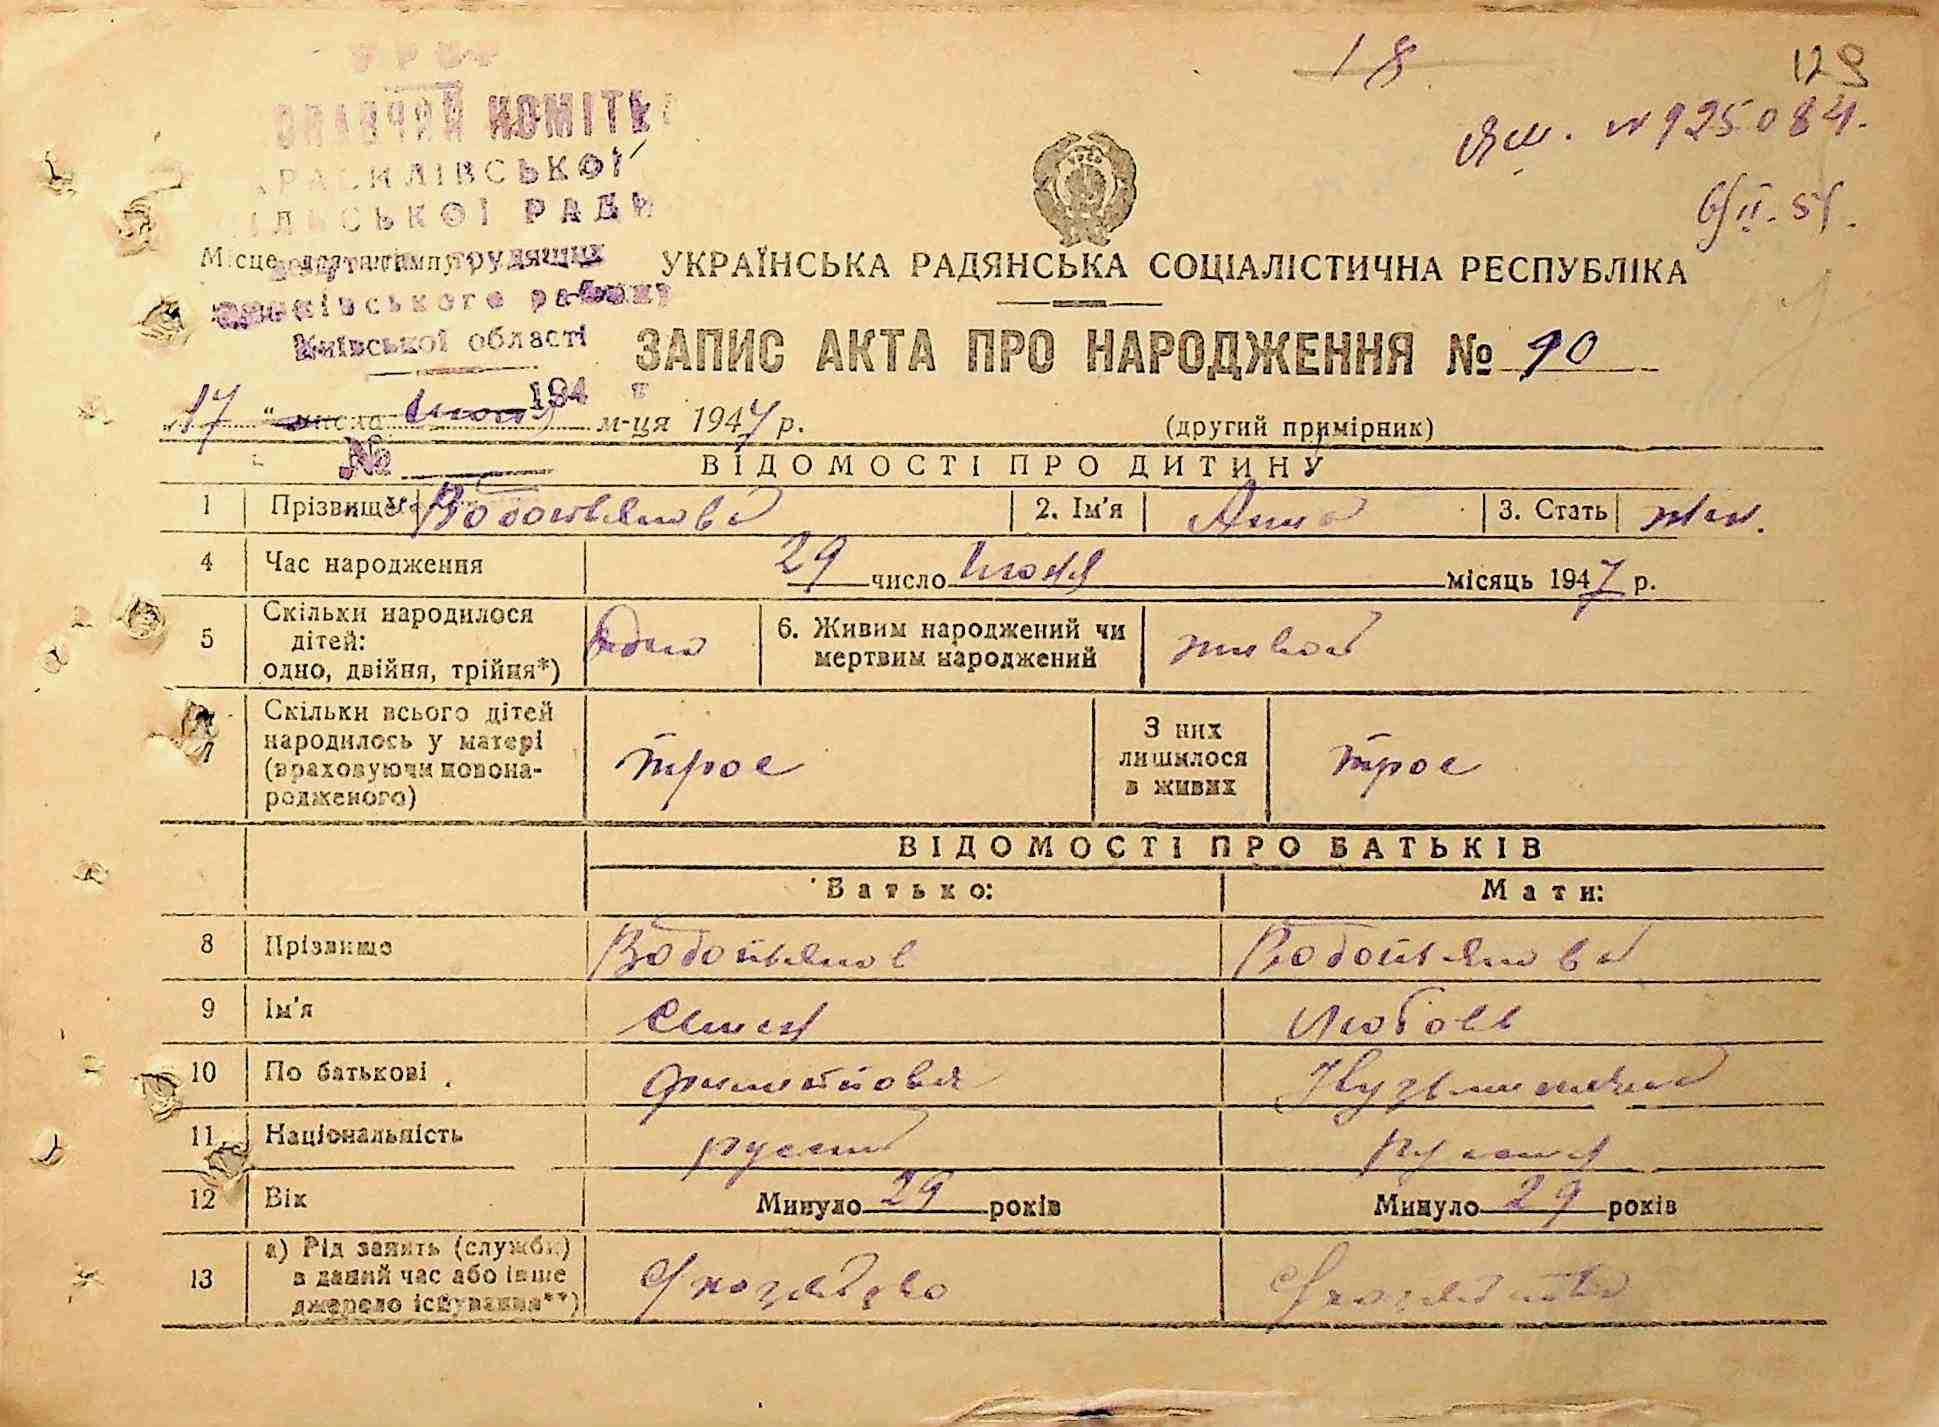 18.
129
ЯШ. № 925084.
6/II. 51.
КОМІТЕ
СИЛІВСЬКОЇ
ІЛЬСЬКОЇ РАДИ
Місце трудящих
району
Київської області
194
№
УКРАЇНСЬКА РАДЯНСЬКА СОЦІАЛІСТИЧНА РЕСПУБЛІКА
ЗАПИС АКТА ПРО НАРОДЖЕННЯ № 90
17 " числа м-ця 1947 р.
(другий примірник)
ВІДОМОСТІ ПРО ДИТИНУ
1 Прізвище Водопьянова 2. Ім'я Анна 3. Стать жен.
4 Час народження 29 число июня місяць 1947 р.
5 Скільки народилося
дітей:
одно, двійня, трійня*) одно 6. Живим народжений чи
мертвим народжений живой
7 Скільки всього дітей
народилось у матері
(враховуючи новона-
родженого) трое З них
лишилося
в живих трое
ВІДОМОСТІ ПРО БАТЬКІВ
Батько: Мати:
8 Прізвище Водопьянов Водопьянова
9 Ім'я Любовь
10 По батькові Кузьминична
11 Національність русский русская
12 Вік Минуло 29 років Минуло 29 років
13 а) Рід занять (служби)
в даний час або інше
джерело існування**)